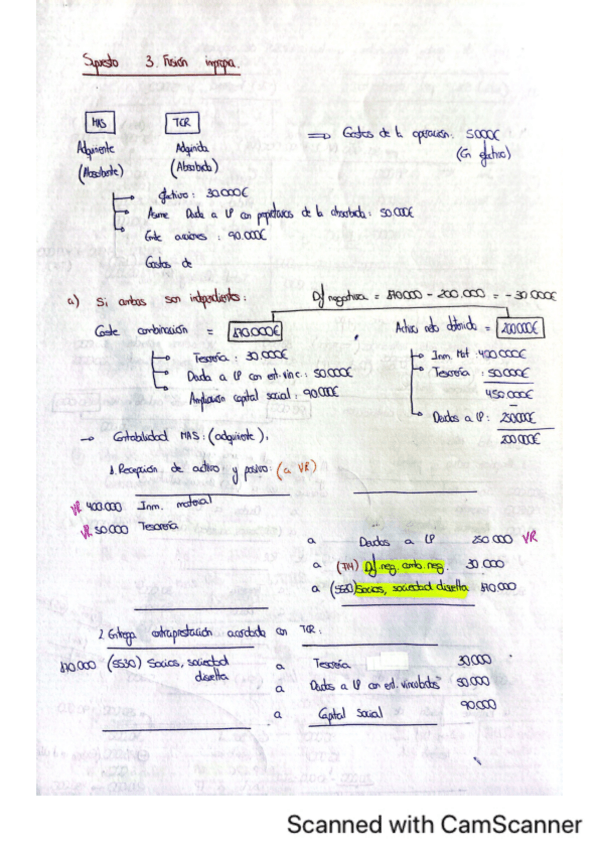 Supuesto 3. Fusión impropia.
MAS TCR
Adquirente Adquirida
(Absorbente) (Absorbida)
⇒ Gastos de la operación: 5000€
(En efectivo)
→ Efectivo: 30.000€
→ Asume Deuda a LP con propietarios de la absorbida: 50.000€
→ Emite acciones: 90.000€
Gastos de
a) Si ambas son independientes:
Dif negativa = 170.000 - 200.000 = -30.000€
Coste combinación = 170.000€
Activo neto obtenido = 200.000€
→ Tesorería: 30.000€
→ Deuda a LP con ent. vinc: 50.000€
→ Ampliación capital social: 90.000€
→ Inm. Mat: 400.000€
→ Tesorería: 50.000€
450.000€
→ Deudas a LP: 250.000€
200.000€
→ Contabilidad MAS: (adquirente).
1. Recepción de activo y pasivo: (a VR)
VR 400.000 Inm. material
VR 50.000 Tesorería
a Deudas a LP 250.000 VR
a (774) Dif. neg. comb. neg. 30.000
a (5530) Socios, sociedad disuelta 170.000
2. Entrega contraprestación acordada con TCR:
170.000 (5530) Socios, sociedad disuelta
a Tesorería 30.000
a Deudas a LP con ent. vinculadas 50.000
a Capital social 90.000
Scanned with CamScanner